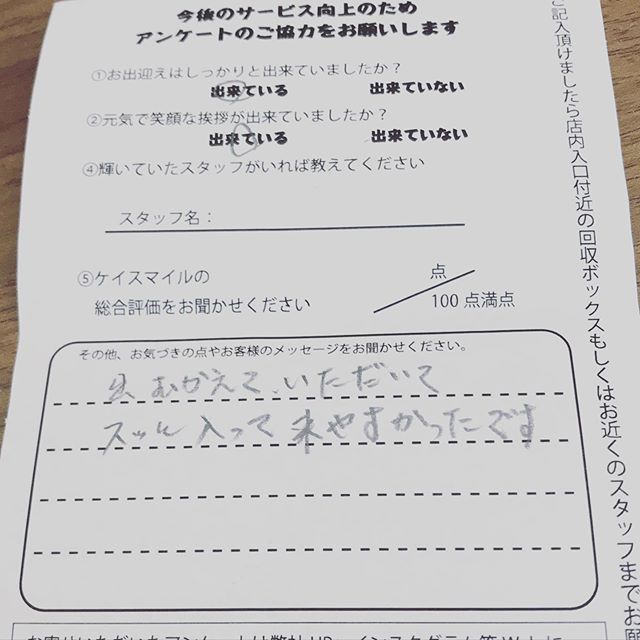 今後のサービス向上のため
アンケートのご協力をお願いします
①お出迎えはしっかりと出来ていましたか？
出来ている　出来ていない
②元気で笑顔な挨拶が出来ていましたか？
出来ている　出来ていない
④輝いていたスタッフがいれば教えてください
スタッフ名：
⑤ケイスマイルの　点
総合評価をお聞かせください　100点満点
その他、お気づきの点やお客様のメッセージをお聞かせください。
出むかえて、いただいて
スッと入って来やすかったです
ご記入頂けましたら店内入口付近の回収ボックスもしくはお近くのスタッフまでお